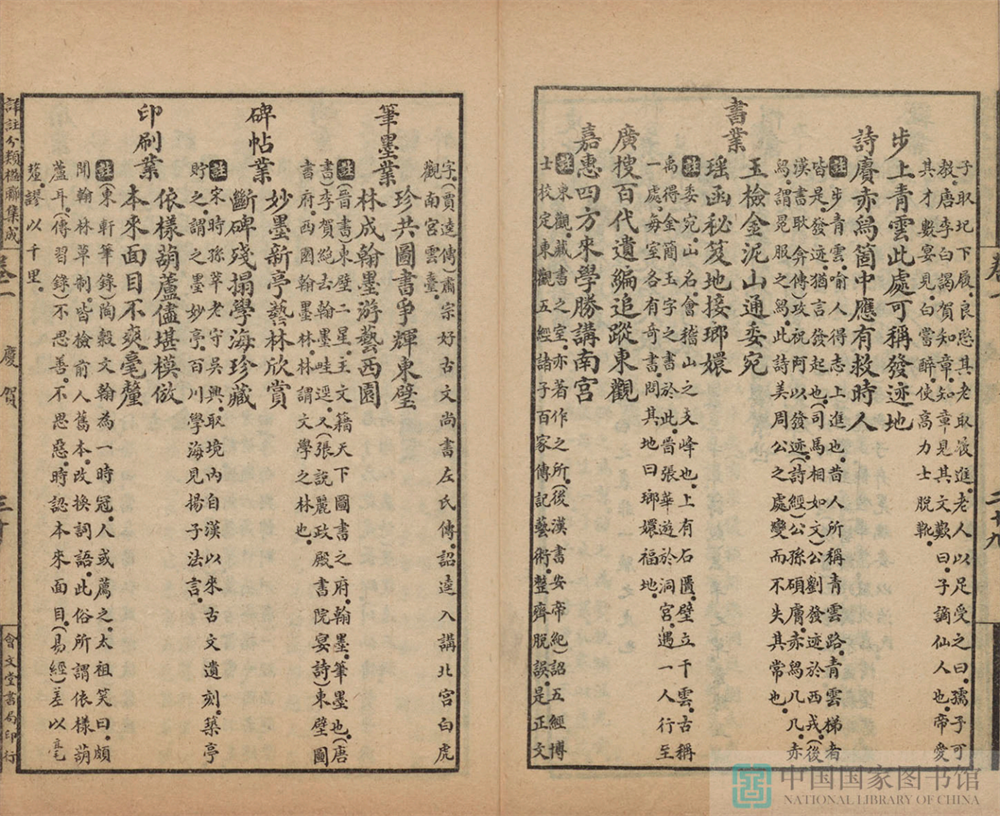 子取圯下履良愁其老取履進老人以足受之曰孺子可
教唐李白謁賀知章知章見其文歎曰子謫仙人也帝愛
其才數宴見白嘗醉使高力士脫靴
步上青雲此處可稱發迹地
詩賡赤舄箇中應有救時人
註步青雲喻人得志上進也昔人所稱青雲路青雲梯者
皆是發迹猶言發起也司馬相如文公劉發迹於西戎(後
漢書耿弇傳)攻祝阿以發迹(詩經)公孫碩膚赤舄几几赤
舄謂冕服之舄此詩美周公之處變而不失其常也
書業
玉檢金泥山通委宛
瑤函秘笈地接瑯嬛
註委宛山名會稽山之支峰也上有石匱壁立千雲古稱
禹得金簡玉字之書於此晉張華遊於洞宮遇一人行至
一處每室各有奇書問其地曰瑯嬛福地
廣搜百代遺編追蹤東觀
嘉惠四方來學勝講南宮
註東觀藏書之室亦著作之所(後漢書安帝紀)詔五經博
士校定東觀五經諸子百家傳記藝術整齊脫誤是正文
卷一
二十九
字(賈逵傳)肅宗好古文尚書左氏傳詔逵入講北宮白虎
觀南宮雲臺
筆墨業
珍共圖書爭輝東壁
林成翰墨游藝西園
註(晉書)東壁二星主文籍天下圖書之府翰墨筆墨也(唐
書)李賀絕去翰墨畦逕又(張說麗政殿書院宴詩)東壁圖
書府西園翰墨林林謂文學之林也
碑帖業
妙墨新亭藝林欣賞
斷碑殘搨學海珍藏
註宋時孫莘老守吳興取境內自漢以來古文遺刻築亭
貯之謂之墨妙亭百川學海見揚子法言
印刷業
依樣葫蘆儘堪模倣
本來面目不爽毫釐
註(東軒筆錄)陶穀文翰為一時冠人或薦之太祖笑曰頗
聞翰林草制皆檢前人舊本改換詞語此俗所謂依樣葫
蘆耳(傳習錄)不思善不思惡時認本來面目(易經)差以毫
釐謬以千里
詳註分類楹聯集成
卷一
慶賀
三十
會文堂書局印行
中国国家图书馆
NATIONAL LIBRARY OF CHINA